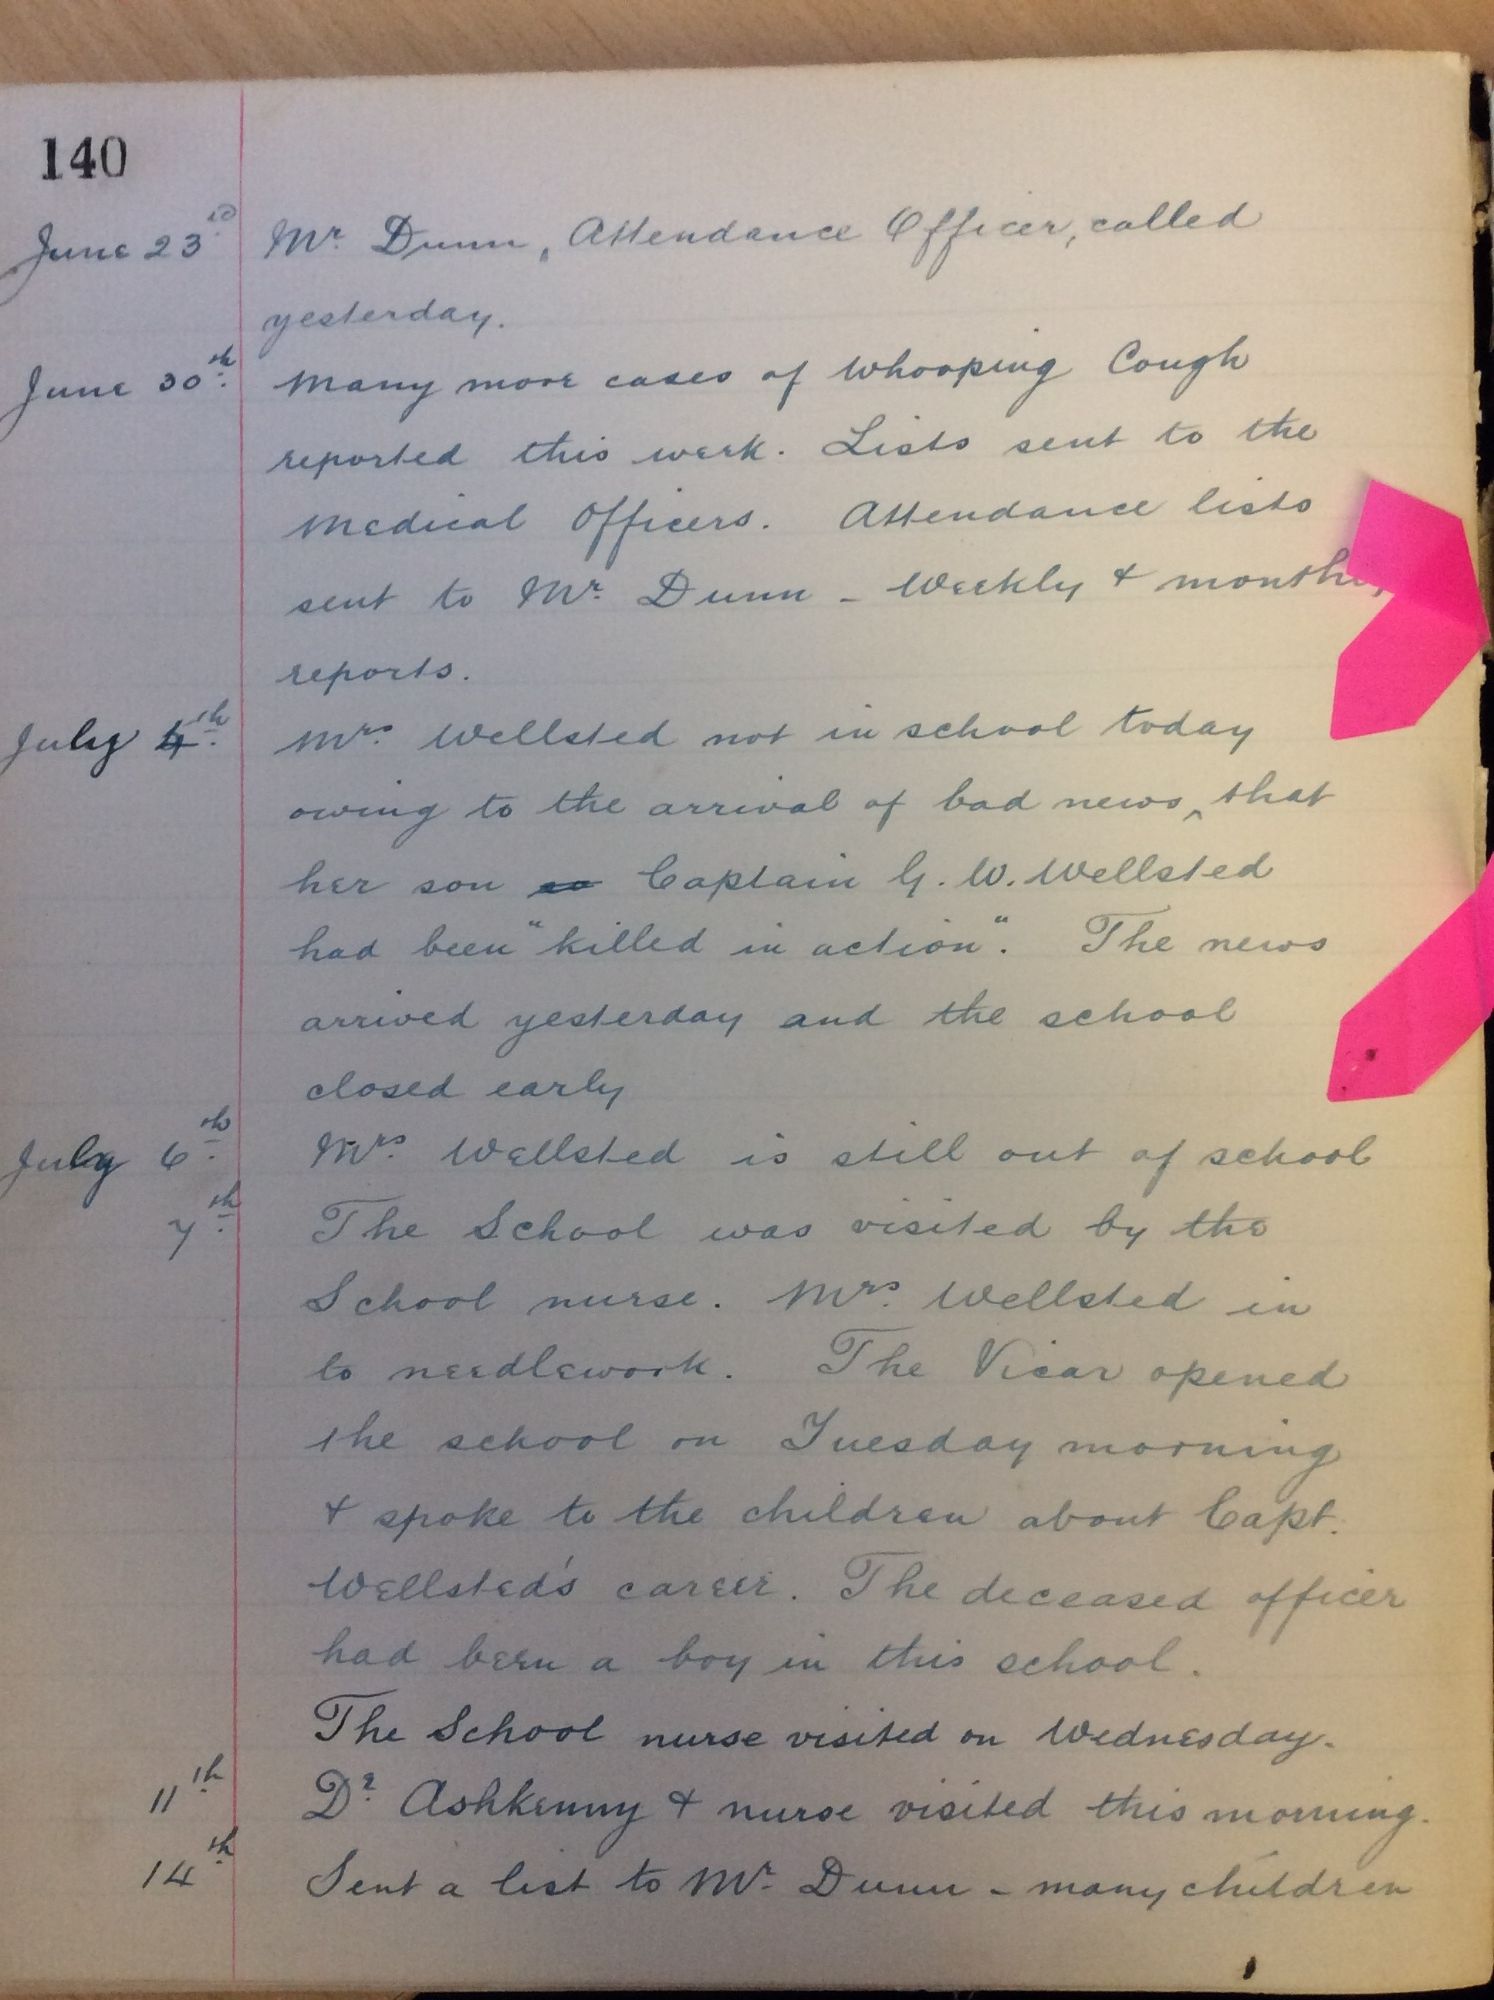 140
June 23rd Mr. Dunn, Attendance Officer, called
yesterday.
June 30th. Many more cases of Whooping Cough
reported this week. Lists sent to the
Medical Officers. Attendance lists
sent to Mr. Dunn - Weekly & monthly
reports.
July 4th. Mrs. Wellsted not in school today
owing to the arrival of bad news, that
her son so Captain G. W. Wellsted
had been "killed in action". The news
arrived yesterday and the school
closed early
July 6th. Mrs. Wellsted is still out of school
7th. The School was visited by the
School nurse. Mrs. Wellsted in
to needlework. The Vicar opened
the school on Tuesday morning
& spoke to the children about Capt.
Wellsted's career. The deceased officer
had been a boy in this school.
The School nurse visited on Wednesday.
11th. Dr. Ashkenny & nurse visited this morning.
14th. Sent a list to Mr. Dunn - many children